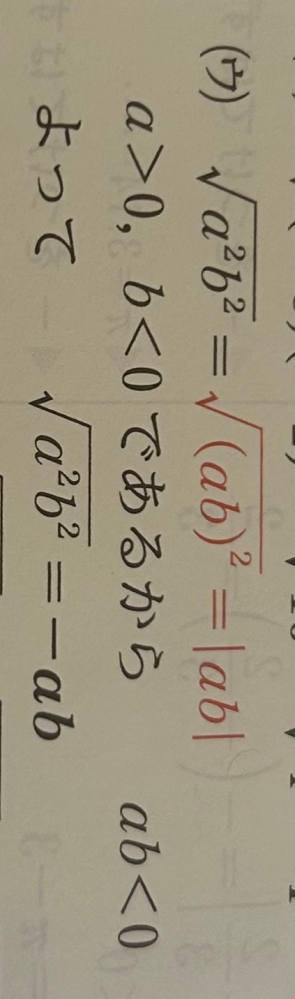 (ウ) √(a²b²) = √((ab)²) = |ab|
a>0, b<0 であるから ab<0
よって √(a²b²) = −ab